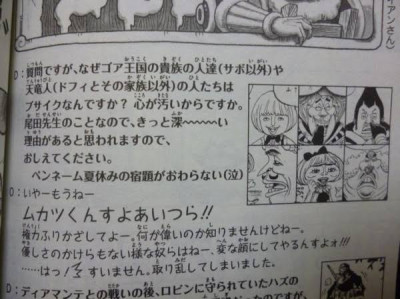 ィアンさん)
D：質問ですが、なぜゴア王国の貴族の人達(サボ以外)や
天竜人(ドフィとその家族以外)の人たちは
ブサイクなんですか? 心が汚いからですか。
尾田先生のことなので、きっと深〜〜〜〜い
理由があると思われますので、
おしえてください。
ペンネーム夏休みの宿題がおわらない(泣)
O：いやーもうねー
ムカツくんすよあいつら!!
権力ふりかざしてよー。何が偉いのか知りませんけどねー。
優しさのかけらもない様な奴らはねー、変な顔にしてやるんすよォ!!!
……はっ! すいません。取り乱してしまいました。
D：ディアマンテとの戦いの後、ロビンに守られていたハズの